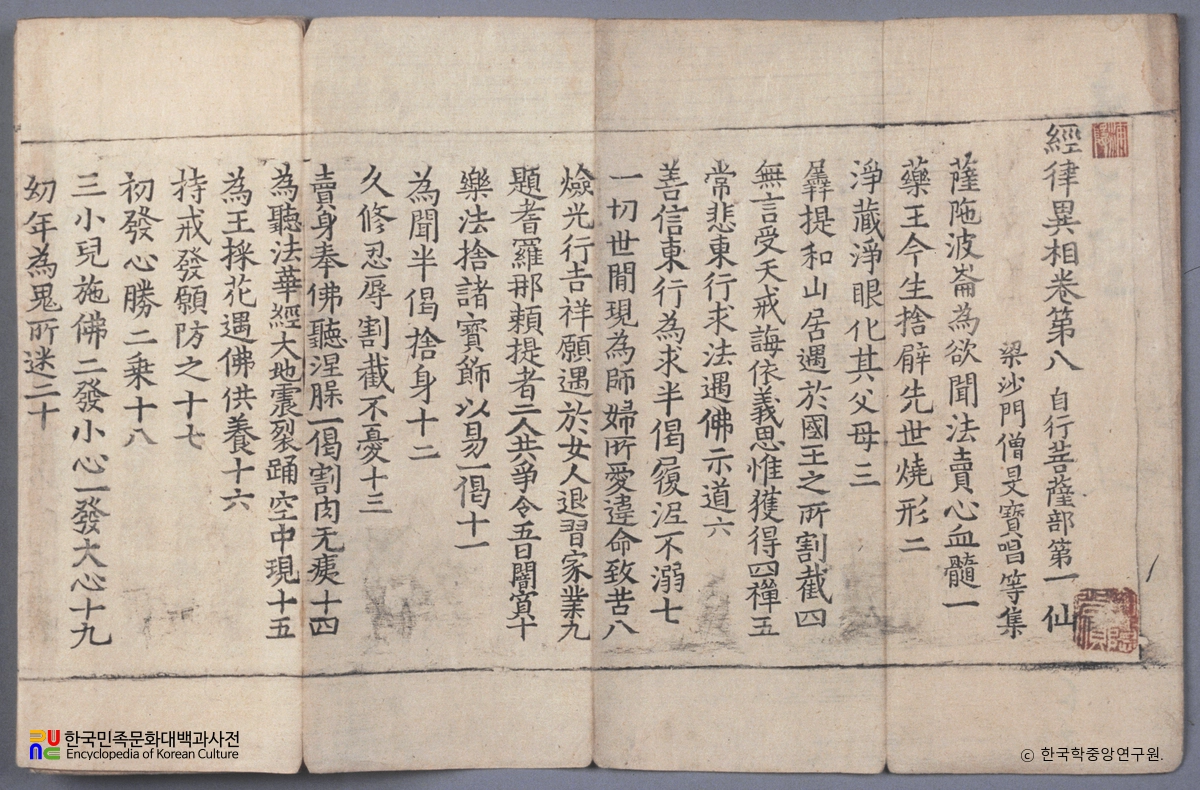 經律異相卷第八 自行菩薩部第一 仙
梁沙門僧旻寶唱等集
薩陁波崙為欲聞法賣心血髓一
藥王今生捨臂先世燒形二
淨藏淨眼化其父母三
羼提和山居遇於國王之所割截四
無言受天戒誨依義思惟獲得四禪五
常悲東行求法遇佛示道六
善信東行為求半偈履泥不溺七
一切世閒現為師婦所愛違命致苦八
燄光行吉祥願遇於女人退習家業九
題耆羅那賴提耆二人共爭令五日闇㝠十
樂法捨諸寶飾以易一偈十一
為聞半偈捨身十二
久修忍辱割截不憂十三
賣身奉佛聽涅槃一偈割肉无痍十四
為聽法華經大地震裂踊空中現十五
為王採花遇佛供養十六
持戒發願防之十七
初發心勝二乘十八
三小兒施佛二發小心一發大心十九
幼年為鬼所迷二十
한국민족문화대백과사전
Encyclopedia of Korean Culture
ⓒ 한국학중앙연구원.